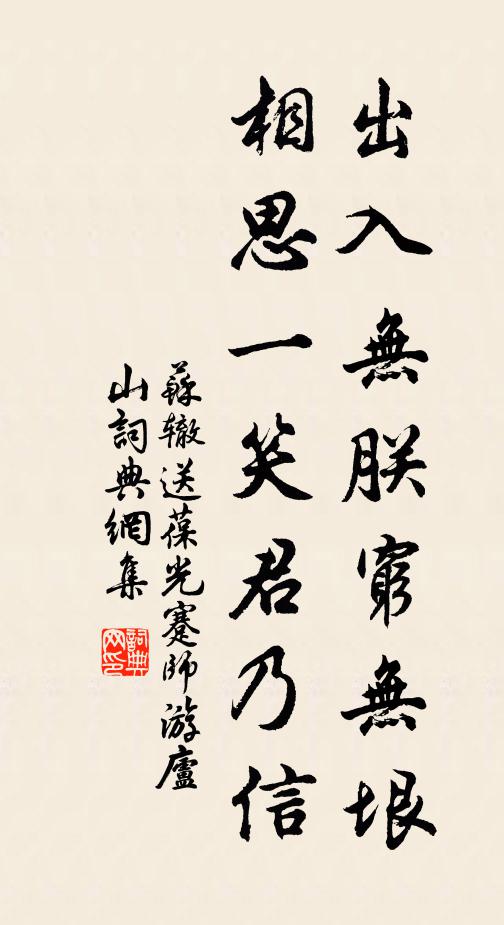 出入無朕窮無垠
相思一笑君乃信
蘇轍送葆光蹇師游廬
山詞典網集
詞典网印